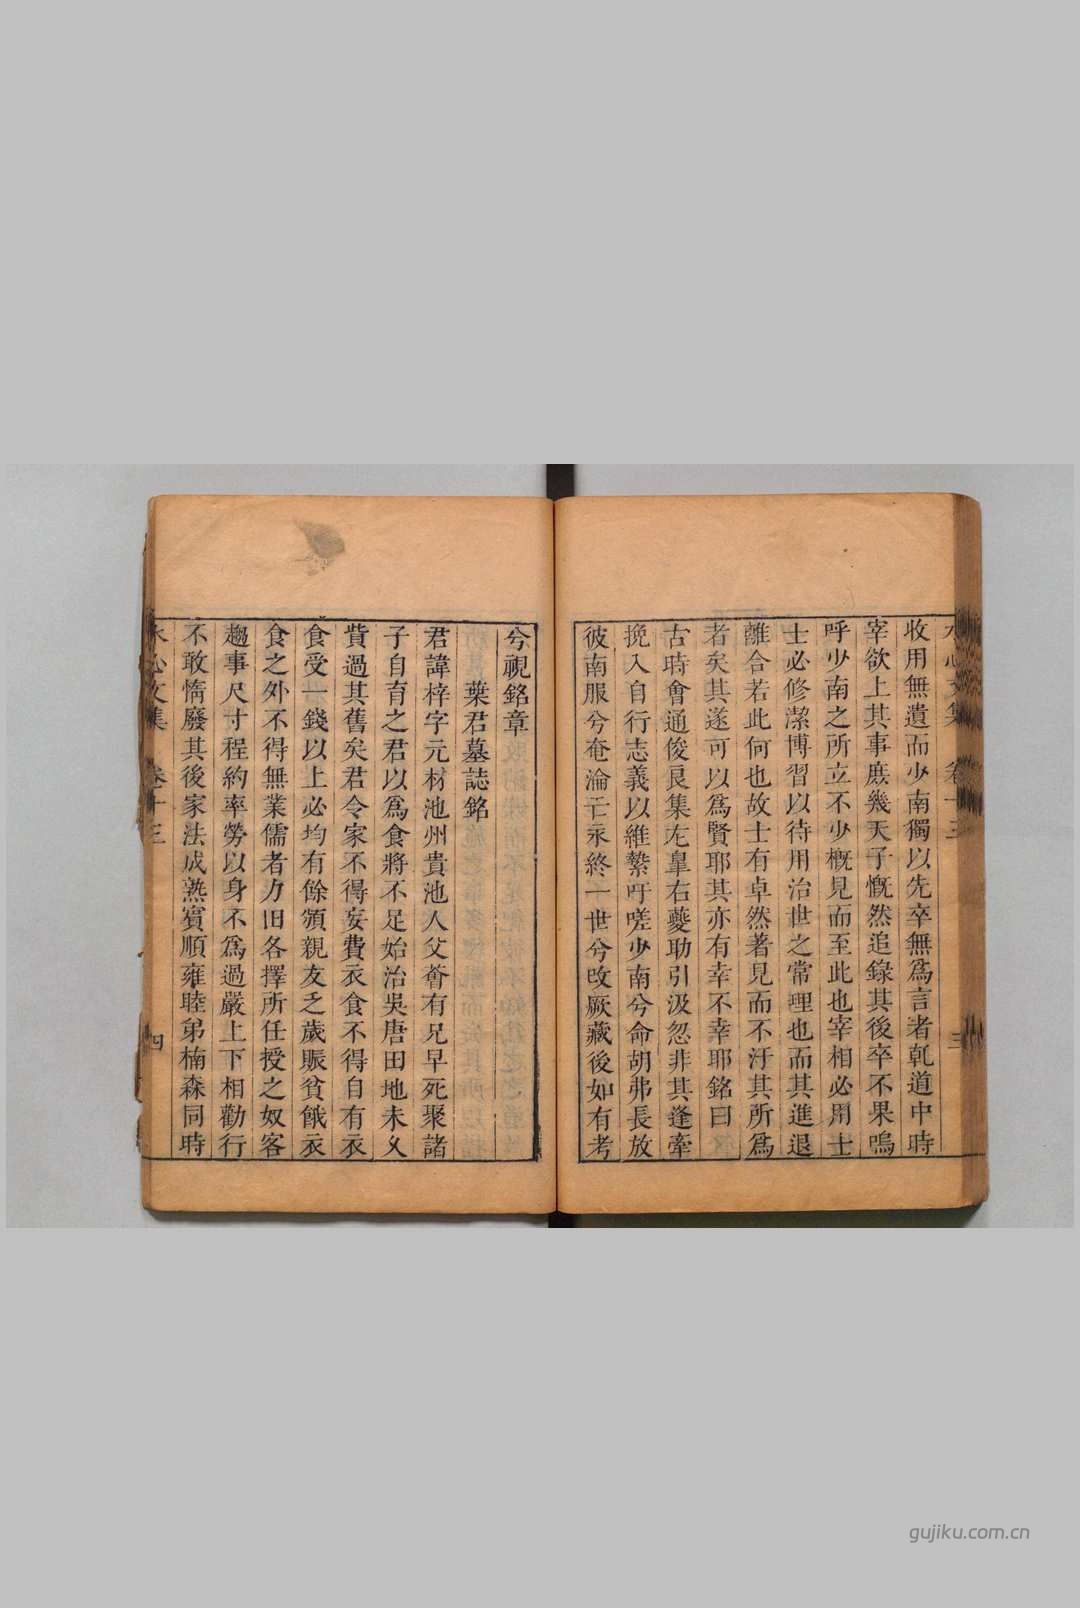 水心文集 卷十三 三
收用無遺而少南獨以先卒無爲言者乹道中時
宰欲上其事庶幾天子慨然追錄其後卒不果嗚
呼少南之所立不少槪見而至此也宰相必用士
士必修潔博習以待用治世之常理也而其進退
離合若此何也故士有卓然著見而不汙其所爲
者矣其遂可以爲賢耶其亦有幸不幸耶銘曰
古時會通俊良集左皐右夔助引汲忽非其逢牽
挽入自行志義以維縶吁嗟少南兮命胡弗長放
彼南服兮奄淪亡永終一世兮攺厥藏後如有考
兮視銘章
葉君墓誌銘
君諱梓字元材池州貴池人父薈有兄早死聚諸
子自育之君以爲食將不足始治吳唐田地未乆
貲過其舊矣君令家不得妄費衣食不得自有衣
食受一錢以上必均有餘頒親友乏歲賑貧餓衣
食之外不得無業儒者力旧各擇所任授之奴客
趨事尺寸程約率勞以身不爲過嚴上下相勸行
不敢惰廢其後家法成熟賓順雍睦弟楠森同時
水心文集 卷十三 四
gujiku.com.cn